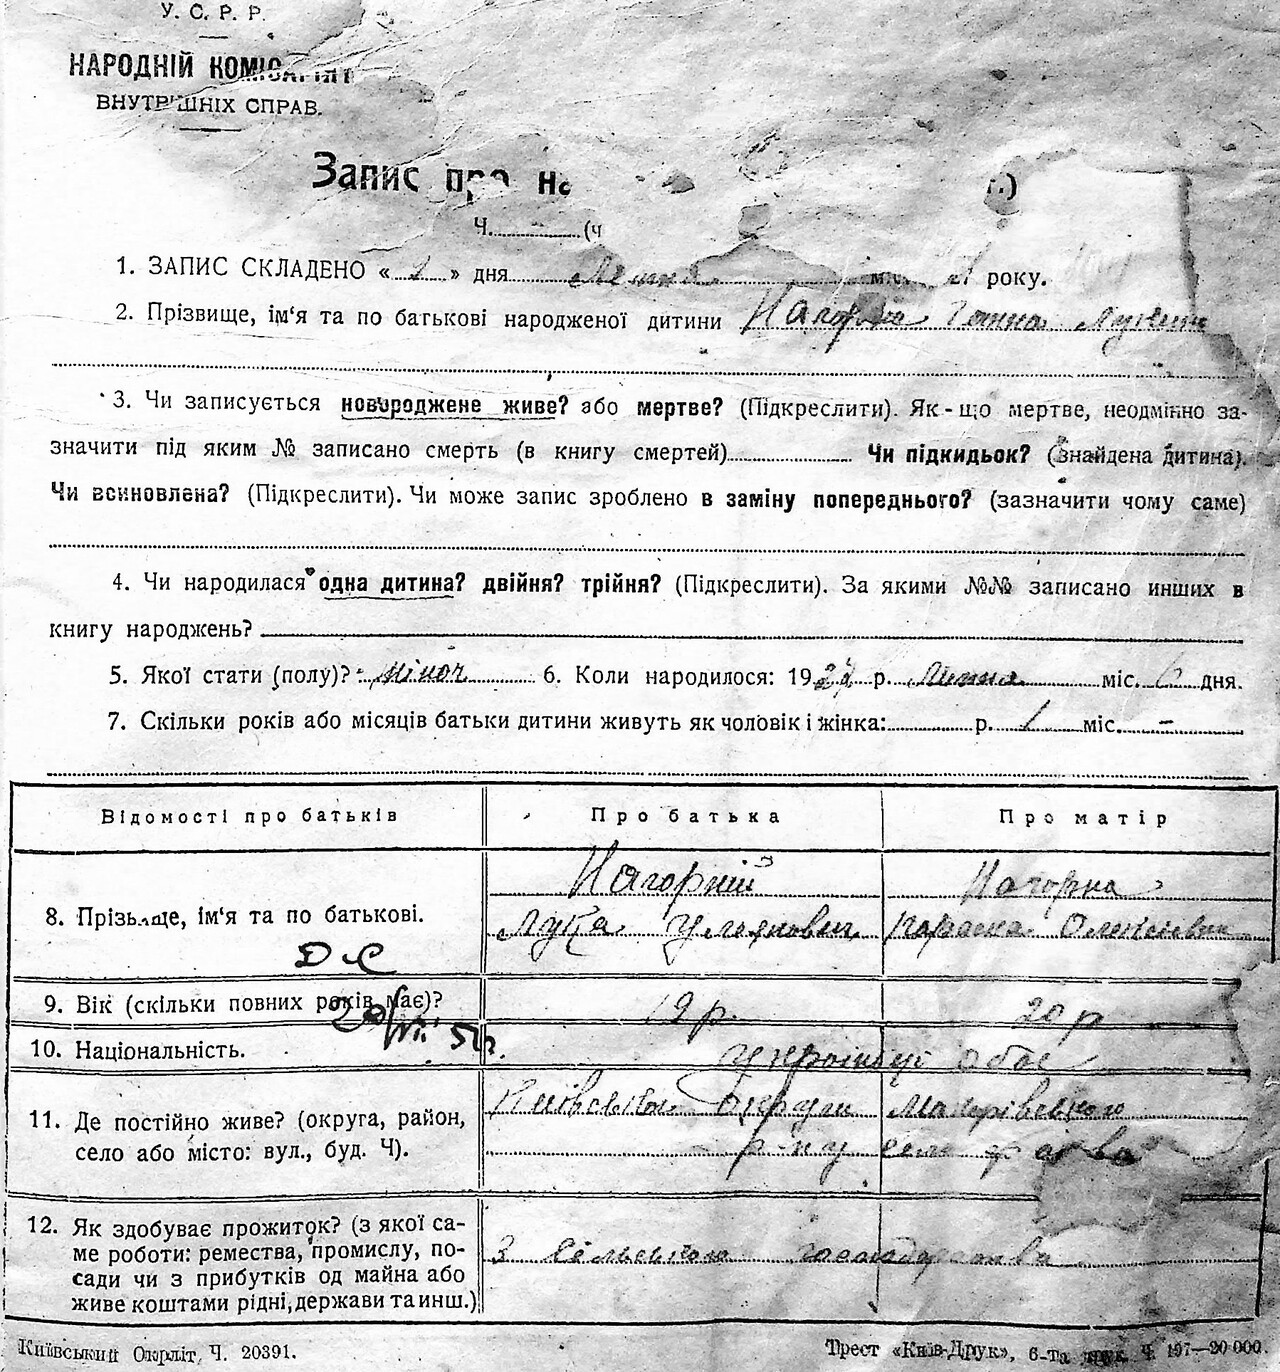 У. С. Р. Р.
НАРОДНІЙ КОМІСАРІЯТ
ВНУТРІШНІХ СПРАВ.
Запис про на
Ч. (ч
1. ЗАПИС СКЛАДЕНО « » дня Липня міс. року.
2. Прізвище, ім'я та по батькові народженої дитини Нагорна Ганна
3. Чи записується новороджене живе? або мертве? (Підкреслити). Як-що мертве, неодмінно за-
значити під яким № записано смерть (в книгу смертей) Чи підкидьок? (знайдена дитина).
Чи всиновлена? (Підкреслити). Чи може запис зроблено в заміну попереднього? (зазначити чому саме)
4. Чи народилася одна дитина? двійня? трійня? (Підкреслити). За якими №№ записано инших в
книгу народжень?
5. Якої стати (полу)? жіноч 6. Коли народилося: 1927 р. Липня міс. 6 дня.
7. Скільки років або місяців батьки дитини живуть як чоловік і жінка: р. 1 міс. –
Відомості про батьків Про батька Про матір
Нагорній Нагорна
8. Прізьвище, ім'я та по батькові. Лука Улянович Параска Олексіївна
9. Вік (скільки повних років має)? 19 р. 20 р
10. Національність. українці обоє
11. Де постійно живе? (округа, район, Київської округи Макарівського
село або місто: вул., буд. Ч). р-ну село
12. Як здобуває прожиток? (з якої са-
ме роботи: ремества, промислу, по- З сільського господарства
сади чи з прибутків од майна або
живе коштами рідні, держави та инш.)
Київський Окрліт, Ч. 20391. Трест «Київ-Друк», 6-та друк. Ч. 197—20 000.